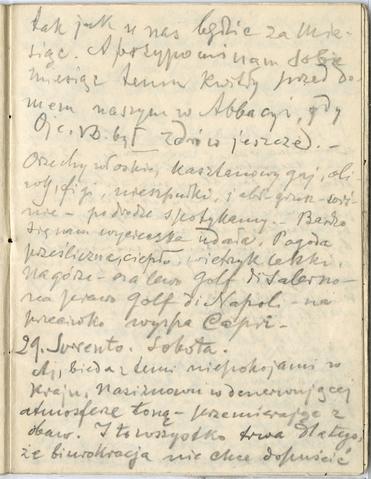 tak jak u nas będzie za mie-
siąc. A przypominam sobie
miesiąc temu kwitły przed do-
mem naszym w Abbacyi, gdy
Ojc. był zdrów jeszcze. –
Orzechy włoskie, kasztanowy gaj, oli
wki, figi, nieszpułki, i
nie – po drodze spotykamy. – Bardzo
się nam wycieczka udała. Pogoda
prześliczna, ciepło, wietrzyk lekki.
Na górze – na lewo Golf di Salerno –
na prawo Golf di Napoli – na
przeciwko wyspa Capri –
29. Sorrento. Sobota.
Aj, bieda z temi niepokojami w
kraju. Nasi znowu w denerwującej
atmosferze toną – przemierając z
obaw. I to wszystko trwa dlatego,
że biurokracja nie chce dopuścić